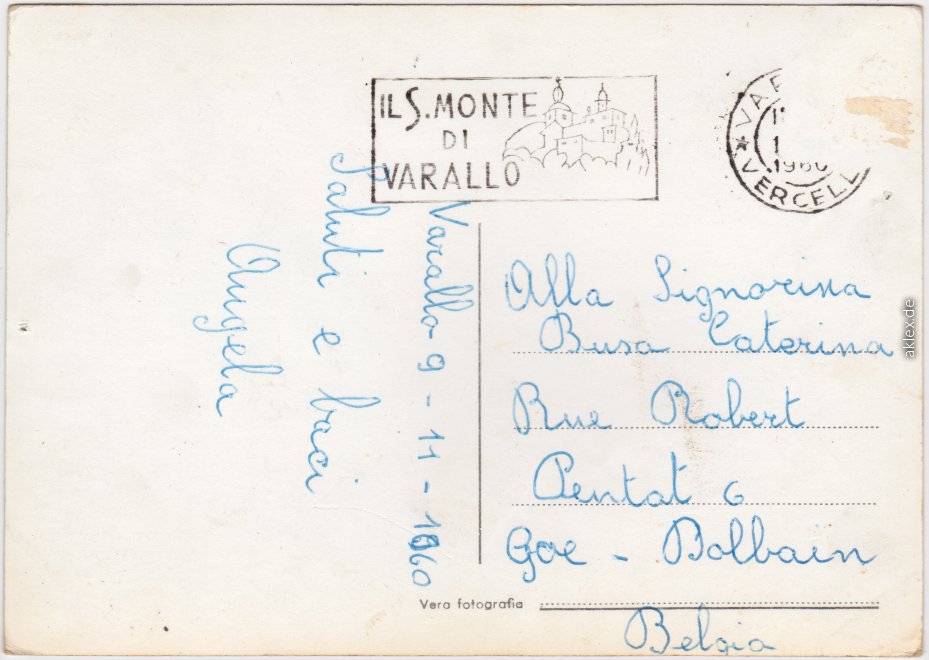 IL S. MONTE
DI
VARALLO
VERCELL
1960
Varallo 9-11-1960
Saluti e baci
Angela
Alla Signorina
Busa Caterina
Rue Robert
Pentat 6
Goe - Bolbain
Belgia
Vera fotografia
aklex.de